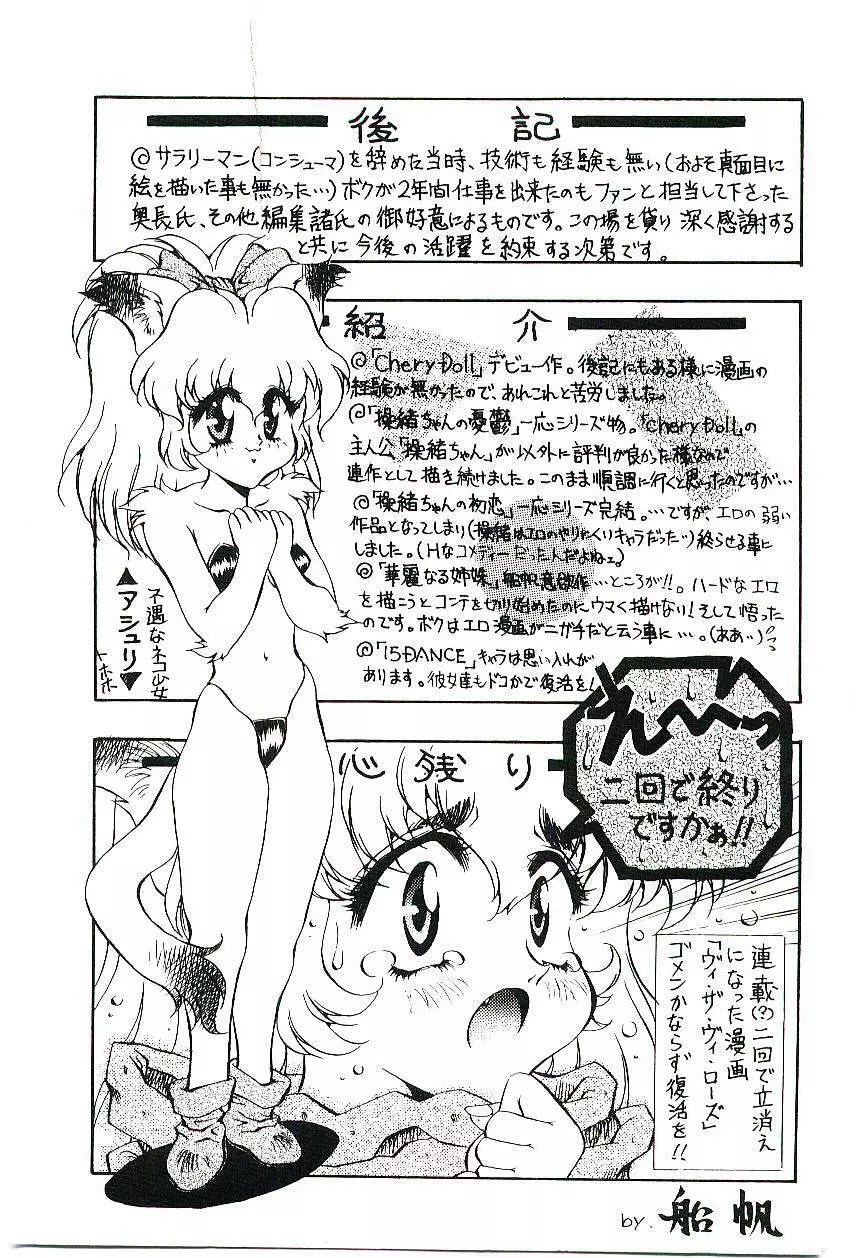 後記
◎サラリーマン(コンシューマ)を辞めた当時、技術も経験も無い(およそ真面目に
絵を描いた事も無かった…)ボクが2年間仕事を出来たのもファンと担当して下さった
奥長氏、その他編集諸氏の御好意によるものです。この場を貸り深く感謝する
と共に今後の活躍を約束する次第です。
紹介
◎「CheryDoll」デビュー作。後記にもある様に漫画の
経験が無かったので、あれこれと苦労しました。
◎「操緒ちゃんの憂鬱」一応シリーズ物。「CheryDoll」の
主人公「操緒ちゃん」が以外に評判が良かった様なので
連作として描き続けました。このまま順調に行くと思ったのですが…
◎「操緒ちゃんの初恋」一応シリーズ完結。…ですが、エロの弱い
作品となってしまい(操緒はエロのやりにくいキャラだった…)終らせる事に
しました。(Hなコメディーだったんだよねェ)
◎「華麗なる姉妹」船帆意欲作…ところが!!。ハードなエロ
を描こうとコンテを切り始めたのにウマく描けない!そして悟った
のです。ボクはエロ漫画がニガ手だと云う事に…。(ああ…)
◎「75DANCE」キャラは思い入れが
あります。彼女達もドコかで復活を!
▲アシュリ▼
不遇なネコ少女
トホホ
心残り
え〜〜っ
二回で終り
ですかぁ!!
連載(?)二回で立消え
になった漫画
「ヴィ・ザ・ヴィ・ローズ」
ゴメンかならず復活を!!
by. 船帆